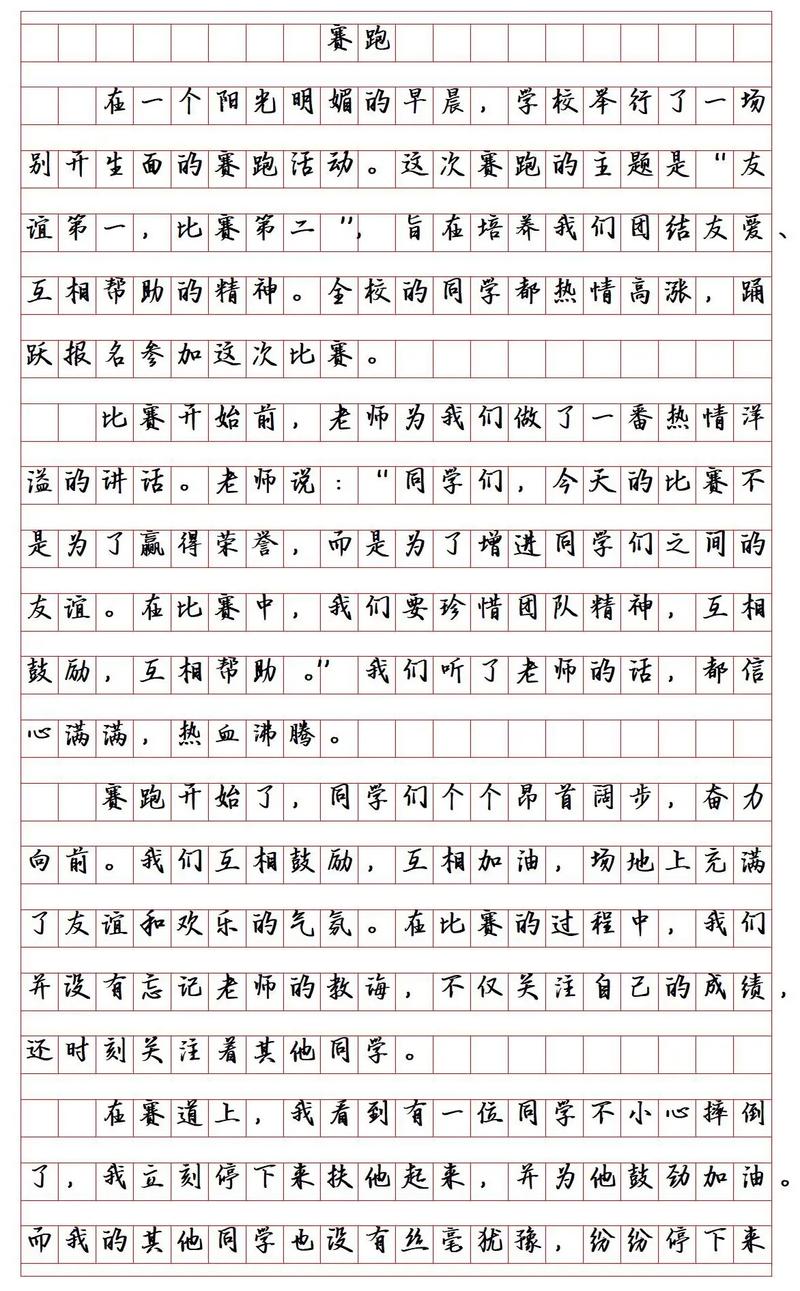 赛跑
在一个阳光明媚的早晨，学校举行了一场
别开生面的赛跑活动。这次赛跑的主题是“友
谊第一，比赛第二”，旨在培养我们团结友爱、
互相帮助的精神。全校的同学都热情高涨，踊
跃报名参加这次比赛。
比赛开始前，老师为我们做了一番热情洋
溢的讲话。老师说：“同学们，今天的比赛不
是为了赢得荣誉，而是为了增进同学们之间的
友谊。在比赛中，我们要珍惜团队精神，互相
鼓励，互相帮助。”我们听了老师的话，都信
心满满，热血沸腾。
赛跑开始了，同学们个个昂首阔步，奋力
向前。我们互相鼓励，互相加油，场地上充满
了友谊和欢乐的气氛。在比赛的过程中，我们
并没有忘记老师的教诲，不仅关注自己的成绩，
还时刻关注着其他同学。
在赛道上，我看到有一位同学不小心摔倒
了，我立刻停下来扶他起来，并为他鼓劲加油。
而我的其他同学也没有丝毫犹豫，纷纷停下来